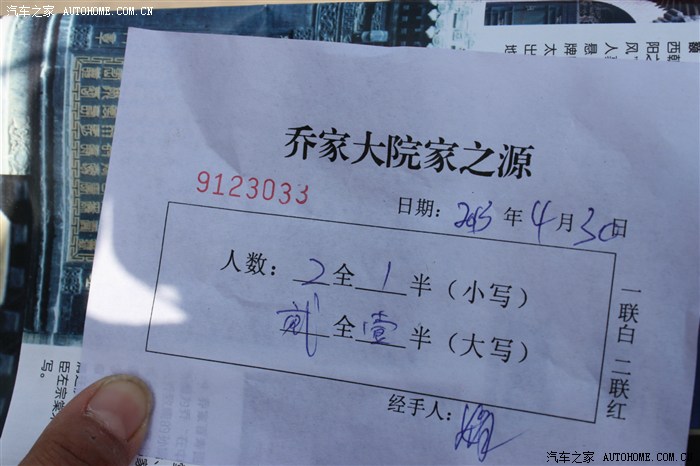 汽车之家 AUTOHOME.COM.CN
乔家大院家之源
9123033
日期：2013年4月30日
人数：2全1半（小写）
贰全壹半（大写）
一联白 二联红
经手人：
写。
汽车之家 AUTOHOME.COM.CN